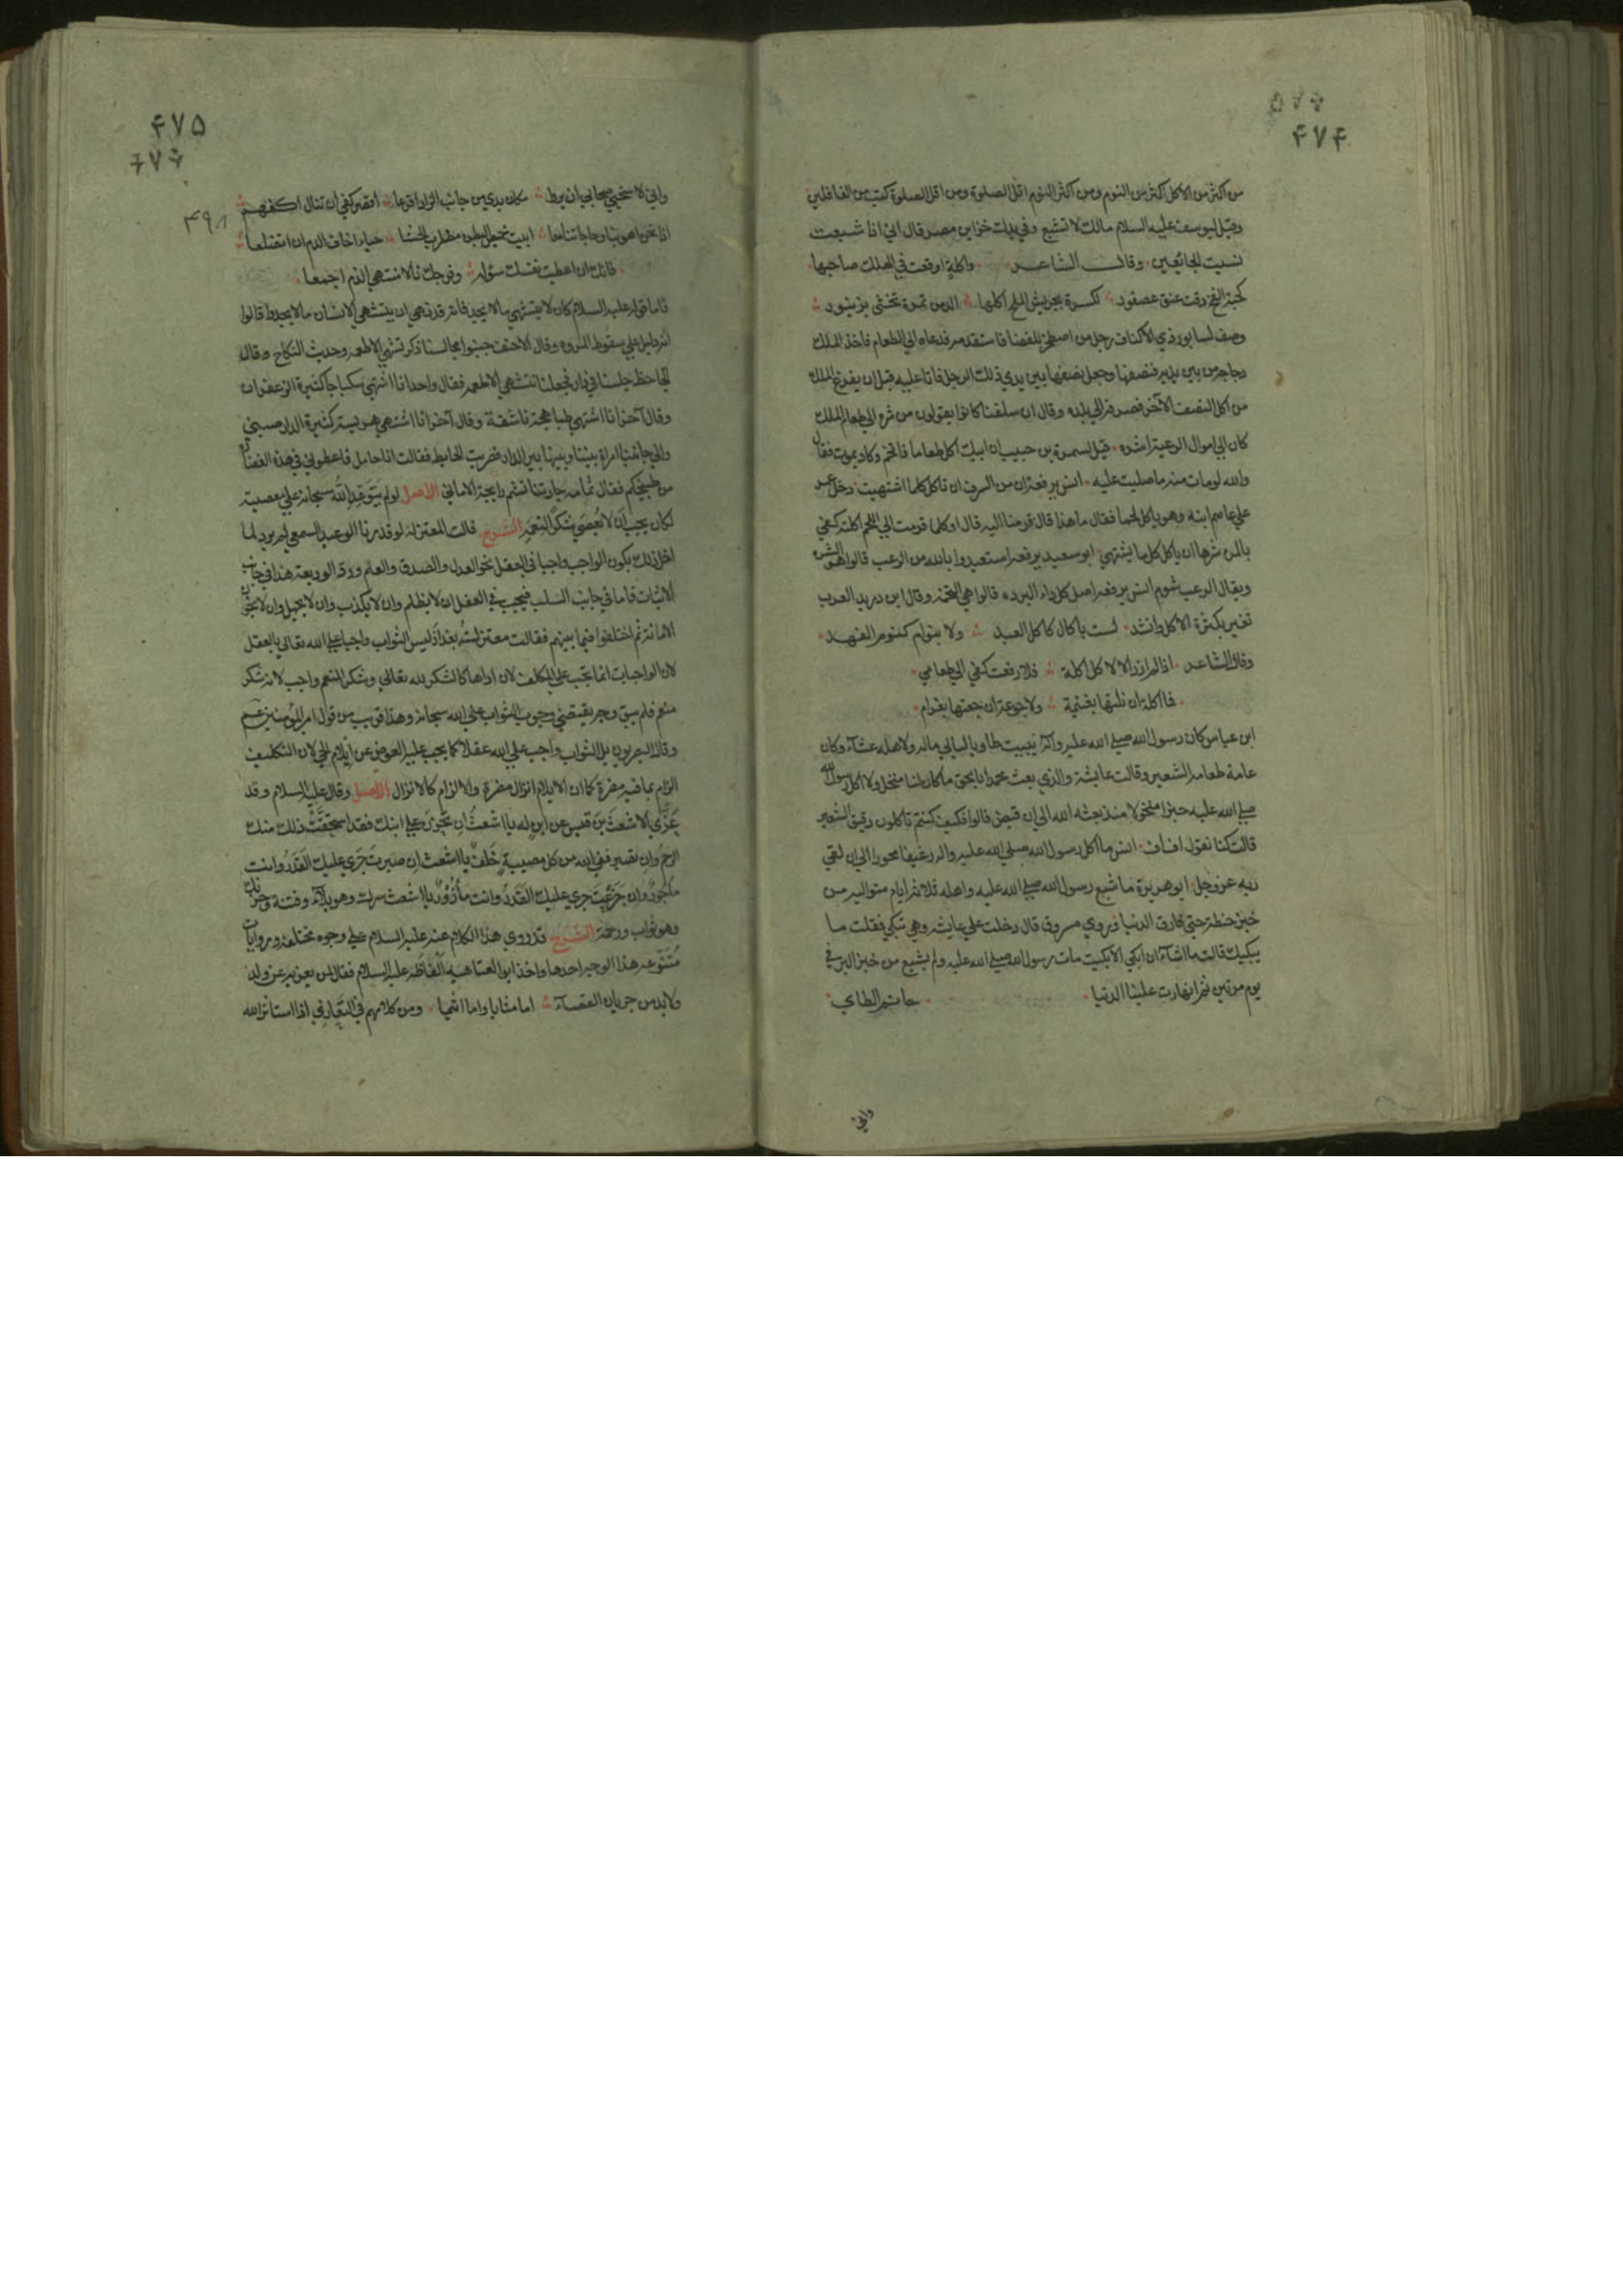 ۴۷۴
من اكثر من الاكل اكثر من النوم ومن اكثر النوم اقل الصلوة ومن اقل الصلوة كتب من الغافلين
وقيل ليوسف عليه السلام مالك لا تشبع وفي يديك خزاين مصر قال اني اذا شبعت
نسيت الجائعين وقال الشاعر واكلة اوقعت في الهلك صاحبها
كحبة الفخ دقت عنق عصفور لكسرة بجريش الملح اكلها الذ من تمرة تحشى بزنبور
وصف لسابور ذي الاكتاف رجل من اصطخر للقضا فاستقدمه فدعاه الي الطعام فاخذ الملك
دجاجة من بين يديه فنصفها وجعل نصفها بين يدي ذلك الرجل فاتا عليه قبل ان يفرغ الملك
من اكل النصف الآخر فصرفه الي بلده وقال ان سلفنا كانوا يقولون من شره الي طعام الملك
كان الي اموال الرعية اشره قيل لسمرة بن حبيب ان ابنك اكل طعاما فاتخم وكاد يموت فقال
والله لو مات منه ما صليت عليه انس يرفعه ان من السرف ان تاكل كلما اشتهيت دخل عمر
علي عاصم ابنه وهو ياكل لحما فقال ما هذا قال قرمنا اليه قال اوكلما قرمت الي اللحم اكلته كفي
بالمرء شرها ان ياكل كل ما يشتهي ابو سعيد يرفعه استعيذوا بالله من الرعب قالوا هو الشره
ويقال الرعب شوم انس يرفعه اصل كل داء البردة قالوا هي التخمة وقال ابن دريد العرب
تعير بكثرة الاكل وانشد لست باكال كاكل العبد ولا بنوام كنوم الفهد
وقال الشاعر اذا لم ازر الا لاكل اكلة فلا رفعت كفي الي طعامي
فما اكلة ان نلتها بغنيمة ولا جوعة ان جعتها بغرام
ابن عباس كان رسول الله صلي الله عليه وآله يبيت طاويا ليالي ماله ولاهله عشاء وكان
عامة طعامه الشعير وقالت عايشة والذي بعث محمدا بالحق ما كان لنا منخل ولا اكل رسول الله
صلي الله عليه خبزا منخولا منذ بعثه الله الي ان قبض قالوا فكيف كنتم تاكلون دقيق الشعير
قالت كنا نقول اف اف انس ما اكل رسول الله صلي الله عليه واله رغيفا محورا الي ان لقي
ربه عز وجل ابو هريرة ما شبع رسول الله صلي الله عليه واهله ثلاثة ايام متوالية من
خبز حنطة حتي فارق الدنيا وروي مسروق قال دخلت علي عايشة وهي تبكي فقلت ما
يبكيك قالت ما اشاء ان ابكي الا بكيت مات رسول الله صلي الله عليه ولم يشبع من خبز البر في
يوم مرتين ثم انهارت علينا الدنيا حاتم الطاي
واني
۴۷۵
واني لاستحيي صحابي ان يروا مكان يدي من جانب الزاد اقرعا اقصر كفي ان تنال اكفهم
اذا نحن اهوينا وحاجاتنا معا ابيت خميص البطن مضطمر الحشا حياء اخاف الذم ان اتضلعا
فانك ان اعطيت نفسك سؤله وفرجك نالا منتهي الذم اجمعا
فاما قوله عليه السلام كان لا يشتهي ما لا يجد فانه قد نهي ان يتشهي الانسان ما لا يجد وقالوا
انه دليل علي سقوط المروه وقال الاحنف جنبوا مجالسنا ذكر تشهي الاطعمه وحديث النكاح وقال
الجاحظ جلسنا في دار فجعلنا نتشهي الاطعمه فقال واحد انا اشتهي سكباجا كثيرة الزعفران
وقال آخر انا اشتهي طباهجة ناشفة وقال آخر انا اشتهي هريسة كثيرة الدارصيني
والي جانبنا امراة بيننا وبينها بير الدار فضربت الحايط فقالت انا حامل فاعطوني
من طبيخكم فقال ثمامه جارتنا تشم رايحة الاماني الاصل لو لم يتوعد الله سبحانه علي معصيته
لكان يجب ان لا يعصي شكرا لنعمه الشرح قالت المعتزله لو قدرنا ان الوعيد السمعي لم يرد لما
اخل ذلك بكون الواجب واجبا في العقل نحو العدل والصدق والعلم ورد الوديعة هذا في جانب
الاثبات فاما في جانب السلب فيجب في العقل ان لا يظلم وان لا يكذب وان لا يجهل وان لا يخون
الامانة ثم اختلفوا فيما بينهم فقالت معتزلة بغداذ ليس الثواب واجبا علي الله تعالي بالعقل
لان الواجبات انما تجب علي المكلف لان اداها كالشكر لله تعالي وشكر المنعم واجب لانه شكر
منعم فلم يبق وجه يقتضي وجوب الثواب علي الله سبحانه وهذا قريب من قول امير المؤمنين ع
وقال البصريون بل الثواب واجب علي الله عقلا كما يجب عليه العوض عن ايلام الحي لان التكليف
الزام بما فيه مضرة كما ان الايلام انزال مضرة والالزام كالانزال الاصل وقال عليه السلام وقد
عزي الاشعث بن قيس عن ابن له يا اشعث ان تحزن علي ابنك فقد استحقت ذلك منك
الرحم وان تصبر ففي الله من كل مصيبة خلف يا اشعث ان صبرت جري عليك القدر وانت
ماجور وان جزعت جري عليك القدر وانت مأزور يا اشعث سرك وهو بلاء وفتنة وحزنك
وهو ثواب ورحمة الشرح قد روي هذا الكلام عنه عليه السلام علي وجوه مختلفة وروايات
متنوعه هذا الوجه احدها واخذ ابو العتاهيه الفاظه عليه السلام فقال لمن يعزيه عن ولد
ولا بد من جريان القضاء اما مثابا واما اثيما ومن كلامهم في التعازي اذا استاثر الله